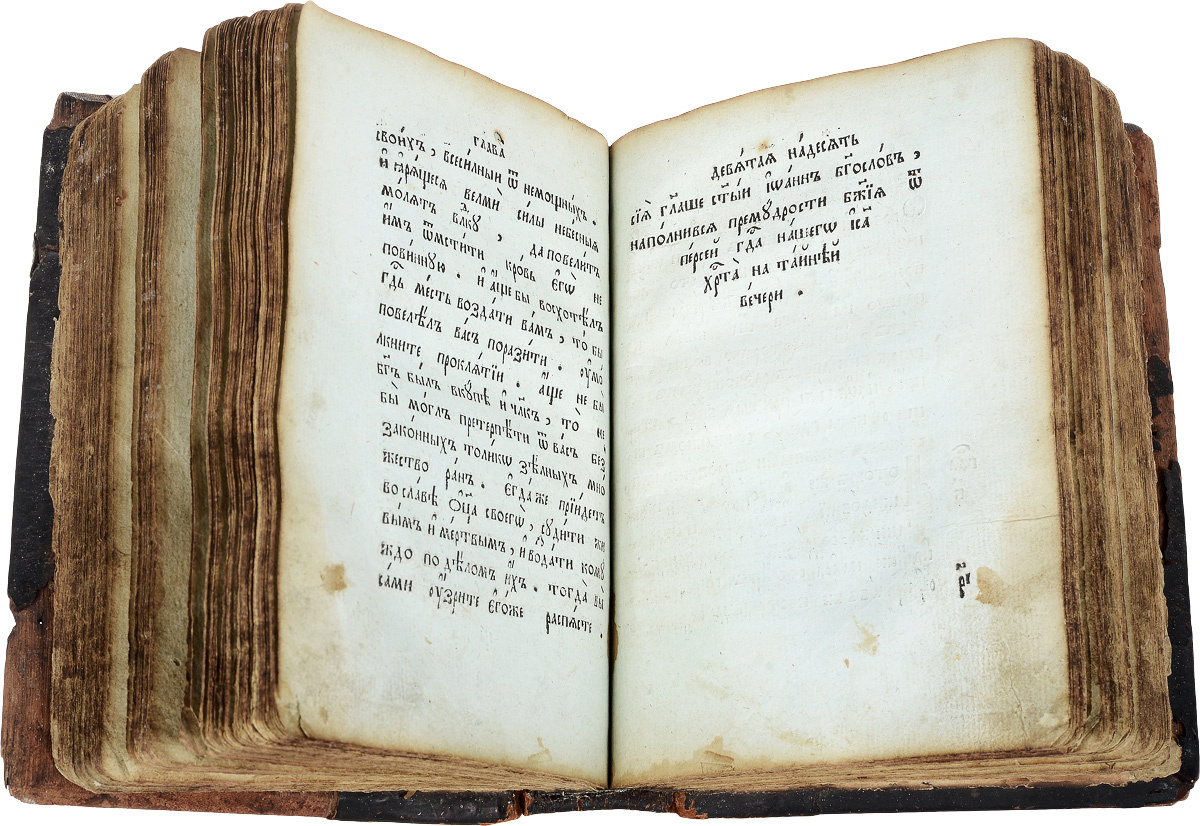 гла́ва
свои́хъ, всеси́лныи ѿ немощны́хъ .
и҆ ꙗ҆ря́щеся велмѝ си́лы небе́сныя
мо́лятъ влⷣкꙋ , да повели́тъ
и҆мъ ѿмсти́ти кро́вь є҆гѡ̀ не
пови́ннꙋю . и҆ а҆́ще бы восхотѣ́лъ
гдⷭ҇ь ме́сть возда́ти ва́мъ, то̀ бы
повелѣ́лъ ва́съ порази́ти . ᲂу҆мо
лкни́те прокля́тїи . а҆́ще не бы̀
бг҃ъ бы́лъ вкꙋ́пѣ и҆ чл҃къ, то̀ не
бы мо́глъ претерпѣ́ти ѿ ва́съ без
зако́нныхъ толи́кѡ ѕѣ́лныхъ мно́
жество ра́нъ . є҆гда́же прїи́детъ
во сла́вѣ ѻ҆ц҃а̀ своегѡ̀, сꙋди́ти жи
вы́мъ и҆ ме́ртвымъ, и҆ во́дати комꙋ́
ждо по дѣло́м и҆́хъ . тогда̀ вы̀
са́ми ᲂу҆́зрите є҆го́же распя́сте .
девя́тая на́десять
сїѧ̑ гл҃аше ст҃ы́й і҆ѡа́ннъ бг҃осло́въ,
напо́лнився премꙋ́дрости бж҃їѧ ѿ
пе́рсей гдⷭ҇а на́шегѡ і҆с҃а
хрⷭ҇та̀ на та́йнѣй
ве́чери .
рн҃